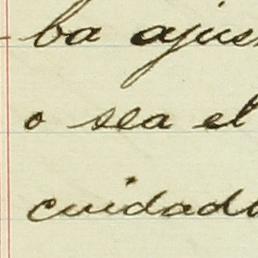 ba ajus
o sea el
cuidado